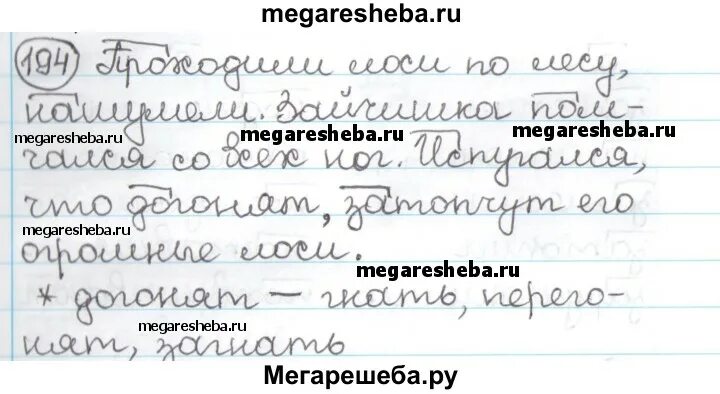 megaresheba.ru
194 Проходили лоси по лесу,
нашумели. Зайчишка пом-
megaresheba.ru megaresheba.ru megaresheba.ru
чался со всех ног. Испугался,
что догонят, затопчут его
megaresheba.ru
огромные лоси.
megaresheba.ru
* догонят – гнать, перего-
megaresheba.ru
нят, загнать
Мегарешеба.ру